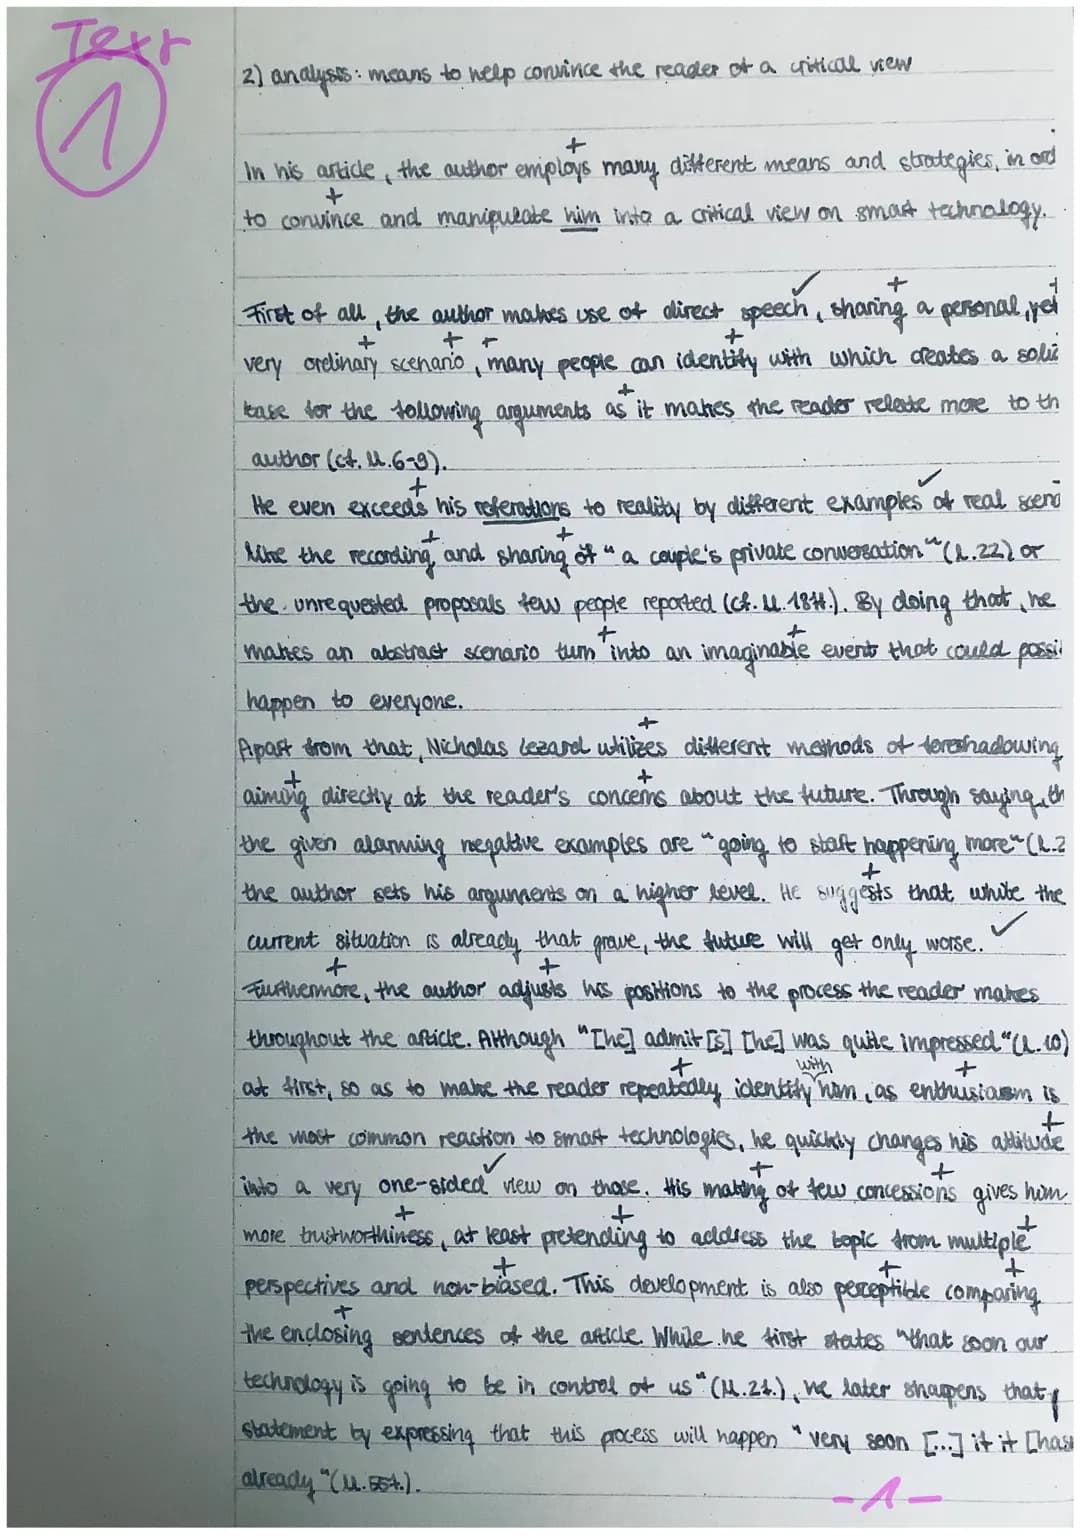 Text
1
2) analysis: means to help convince the reader of a critical view
In his article, the author employs many different means and strategies, in ord
to convince and manipulate him into a critical view on smart technology.
First of all, the author makes use of direct speech, sharing a personal, yet
very ordinary scenario, many people can identify with which creates a solid
base for the following arguments as it makes the reader relate more to th
author (cf. ll. 6-9).
He even exceeds his referations to reality by different examples of real scena
like the recording and sharing of "a couple's private conversation" (l. 22) or
the unrequested proposals few people reported (cf. ll. 18ff.). By doing that, he
makes an abstract scenario turn into an imaginable event that could possi
happen to everyone.
Apart from that, Nicholas Lezard utilizes different methods of foreshadowing
aiming directly at the reader's concerns about the future. Through saying, th
the given alarming negative examples are "going to start happening more" (l. 2
the author sets his arguments on a higher level. He suggests that while the
current situation is already that grave, the future will get only worse.
Furthermore, the author adjusts his positions to the process the reader makes
throughout the article. Although "[he] admit[s] [he] was quite impressed" (l. 10)
at first, so as to make the reader repeatedly identify with him, as enthusiasm is
the most common reaction to smart technologies, he quickly changes his attitude
into a very one-sided view on those. His making of few concessions gives him
more trustworthiness, at least pretending to address the topic from multiple
perspectives and non-biased. This development is also perceptible comparing
the enclosing sentences of the article. While he first states "that soon our
technology is going to be in control of us" (ll. 2f.), he later sharpens that
statement by expressing that this process will happen "very soon [...] if it [has
already" (ll. 55f.).
-1-